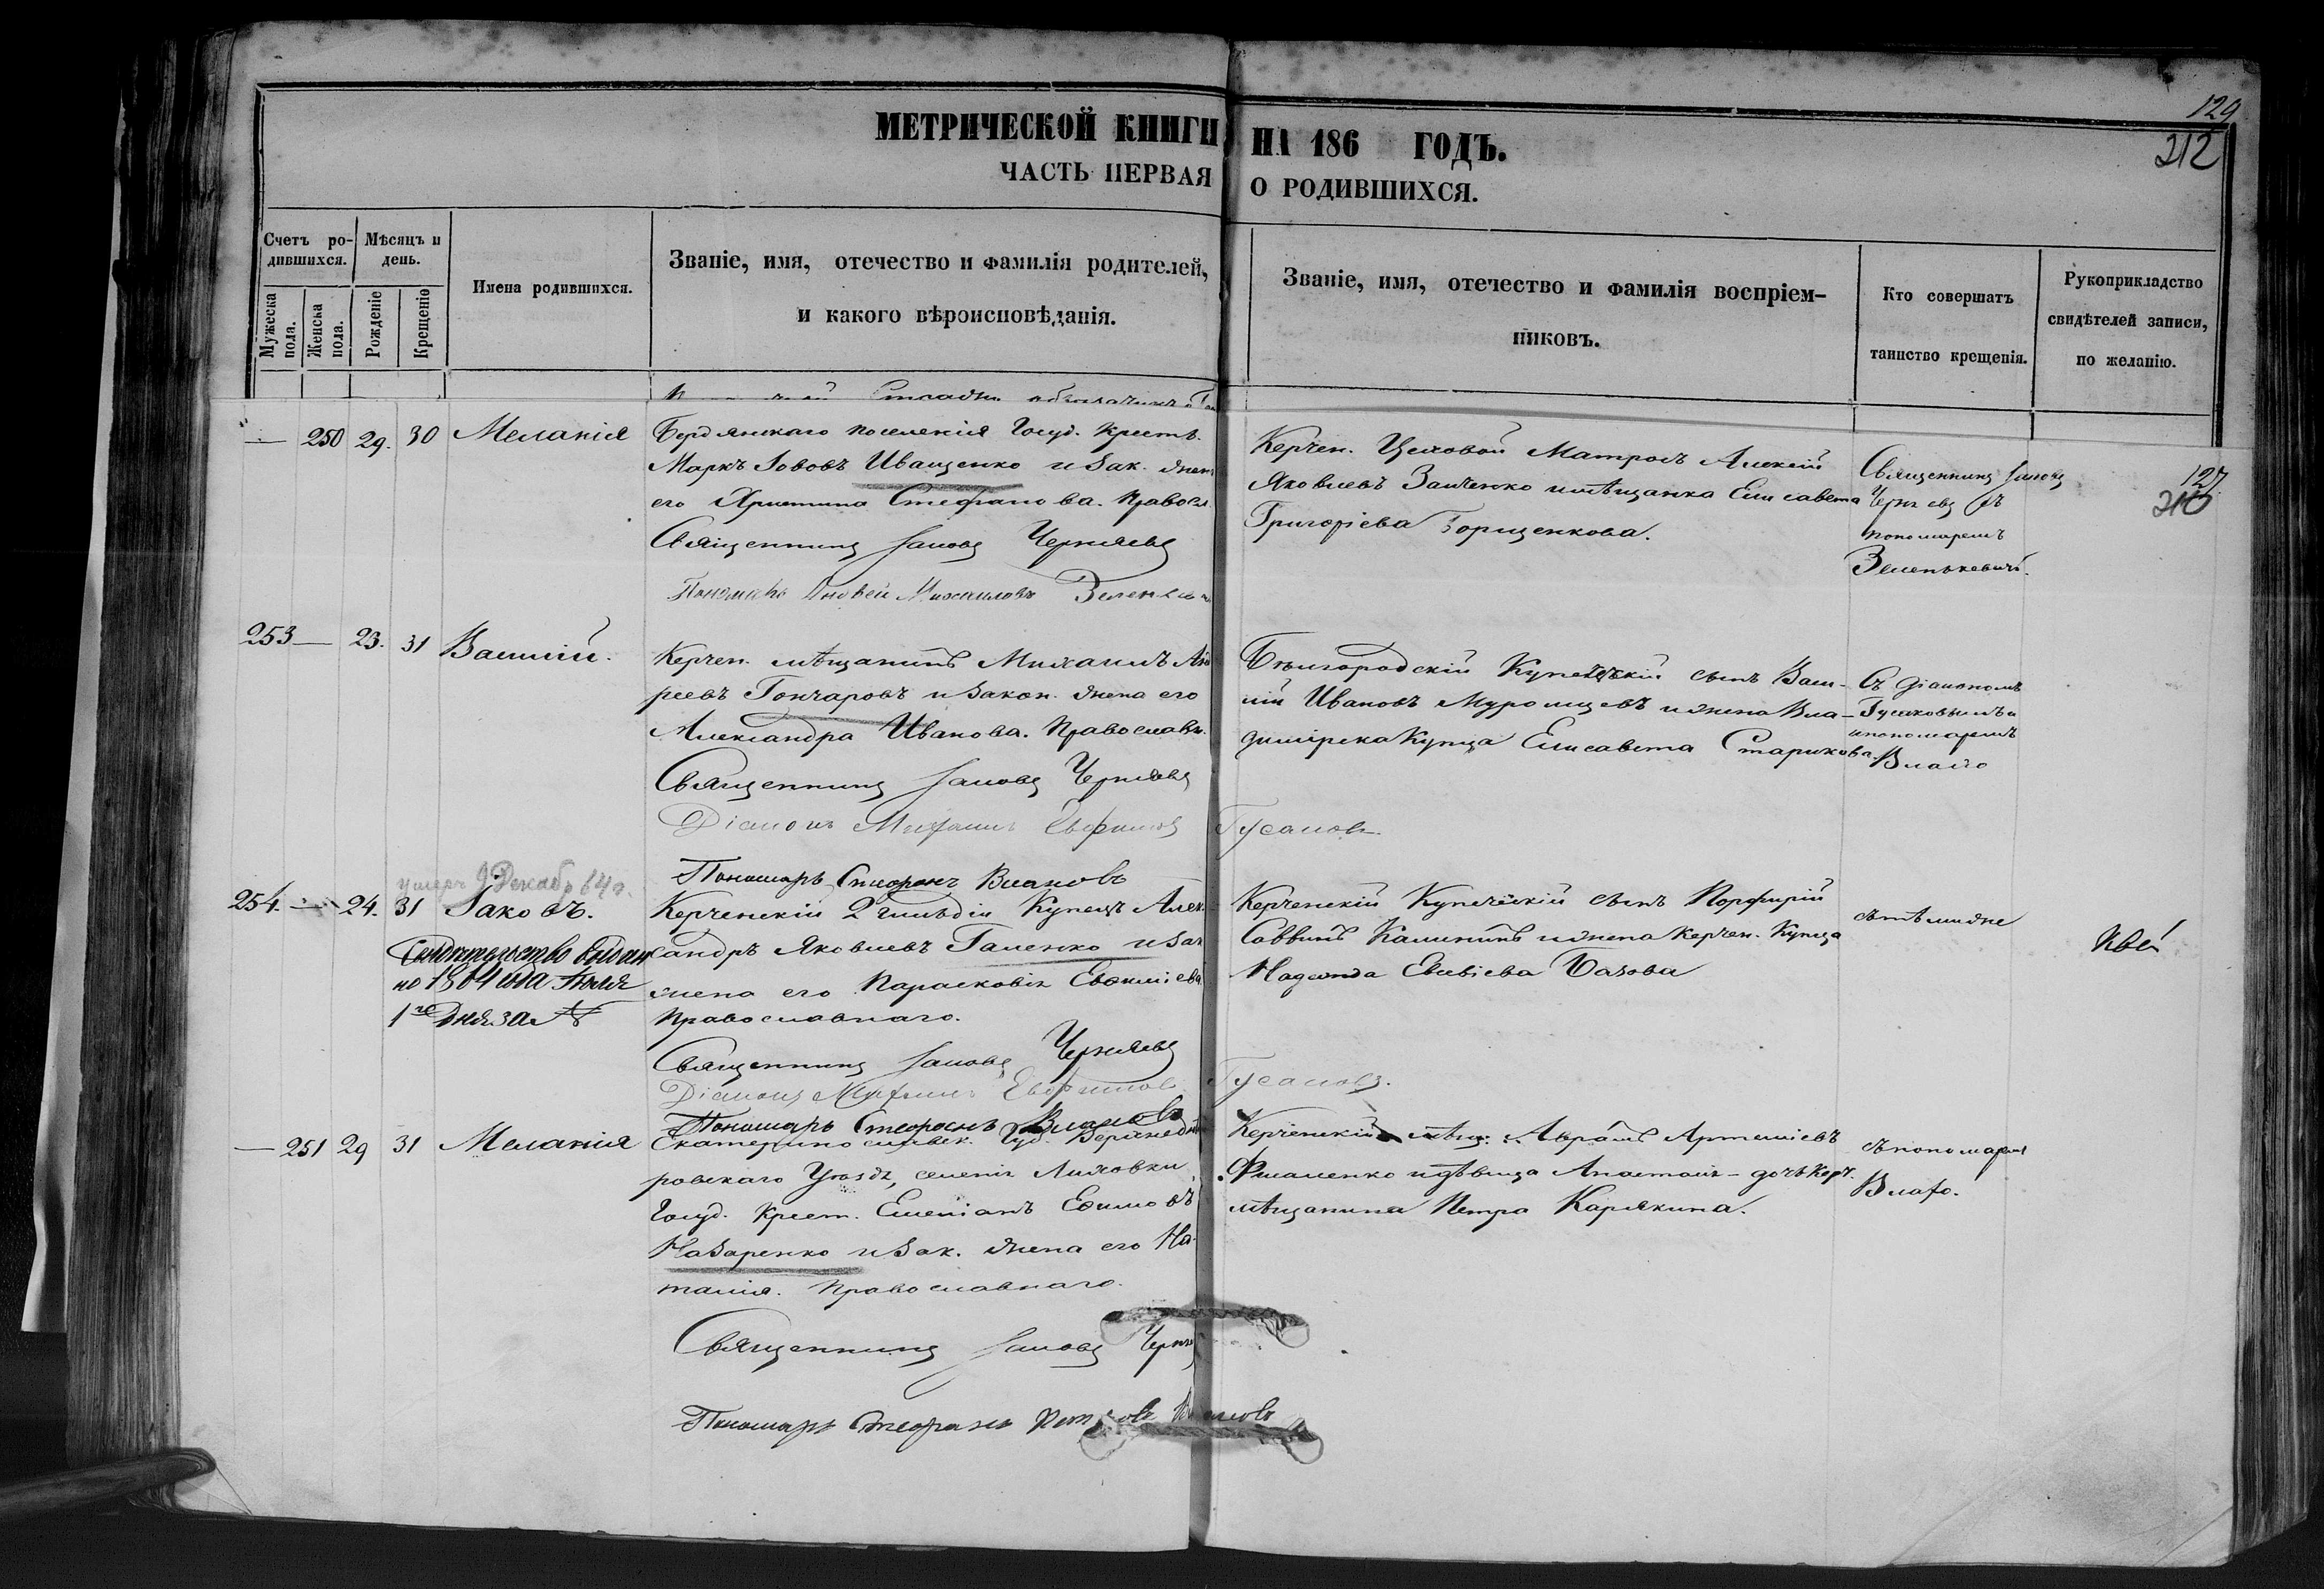 129
212
МЕТРИЧЕСКОЙ КНИГИ НА 186 ГОДЪ.
ЧАСТЬ ПЕРВАЯ О РОДИВШИХСЯ.
Счетъ ро-
дившихся.
Мѣсяцъ и
день.
Мужеска
пола.
Женска
пола.
Рожденіе
Крещеніе
Имена родившихся.
Званіе, имя, отечество и фамилія родителей,
и какого вѣроисповѣданія.
Званіе, имя, отечество и фамилія воспріем-
никовъ.
Кто совершатъ
таинство крещенія.
Рукоприкладство
свидѣтелей записи,
по желанію.
— 250 29. 30 Меланія
Бердянскаго поселенія Госуд. Крест.
Маркъ Іововъ Иващенко и зак. жена
его Христина Стефанова. Правосл.
Священникъ Іаковъ Черняевъ
Пономарь Михаиловъ
Керчен. Цеховой Матросъ Алексій
Яковлевъ Заиченко и мѣщанка Елисавета
Григоріева Борщенкова.
Священникъ Іаковъ
съ
пономаремъ
Зеленкевичъ.
127
210
253 — 23. 31 Василій.
Керчен. мѣщанинъ Михаилъ Анд
реевъ Гончаровъ и закон. жена его
Александра Иванова. Православн.
Священникъ Іаковъ Черняевъ
Діаконъ Михаилъ Евфимовъ Гусаковъ
Пономарь Стефанъ
Бѣлгородскій Купеческій сынъ Васи-
лій Ивановъ Муромцевъ и жена Вла-
димірска Купца Елисавета Старикова.
Съ діакономъ
Гусаковымъ
и пономаремъ
умеръ 9 Декабр 64 г.
254. — 24. 31 Іаковъ.
Свидѣтельство выдан
но 1864 года Іюля
1го дня за №
Керченскій 2 гильдіи Купецъ Алек-
сандръ Яковлевъ Галенко и зак
жена его Парасковія Евфиміева
Православнаго.
Священникъ Іаковъ Черняевъ
Діаконъ Михаилъ Евфимовъ Гусаковъ.
Пономарь Стефанъ
Керченскій Купеческій сынъ Порфирій
Саввинъ Калининъ и жена Керчен. Купца
Надежда
съ тѣми же
— 251 29 31 Меланія
Екатеринославск. Губ. Верхнедн
ровскаго Уѣзда, селенія Лиховки
Госуд. Крест. Емеліанъ Ефимовъ
Назаренко и зак. жена его На-
талія. Православнаго.
Священникъ Іаковъ
Пономарь Стефанъ
Керченскій мѣщ. Авраамъ Артеміевъ
и дѣвица Анастасія — дочь Керч.
мѣщанина Петра Карякина.
съ пономарем